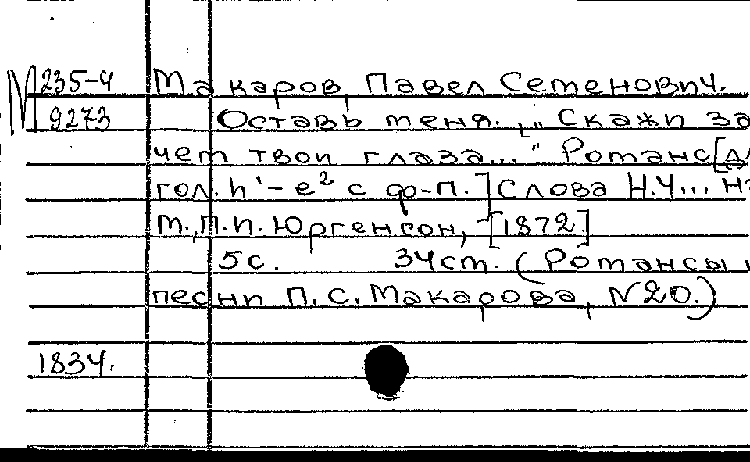 М 235-4 Макаров, Павел Семенович.
9273 Оставь меня. „Скажи за
чем твои глаза..." Романс [дл
гол. h¹-e² с ф-п.] Слова Н.Ч... на
М., П.И. Юргенсон, [1872]
5с. 34см. (Романсы и
песни П.С. Макарова, N20.)
1834.